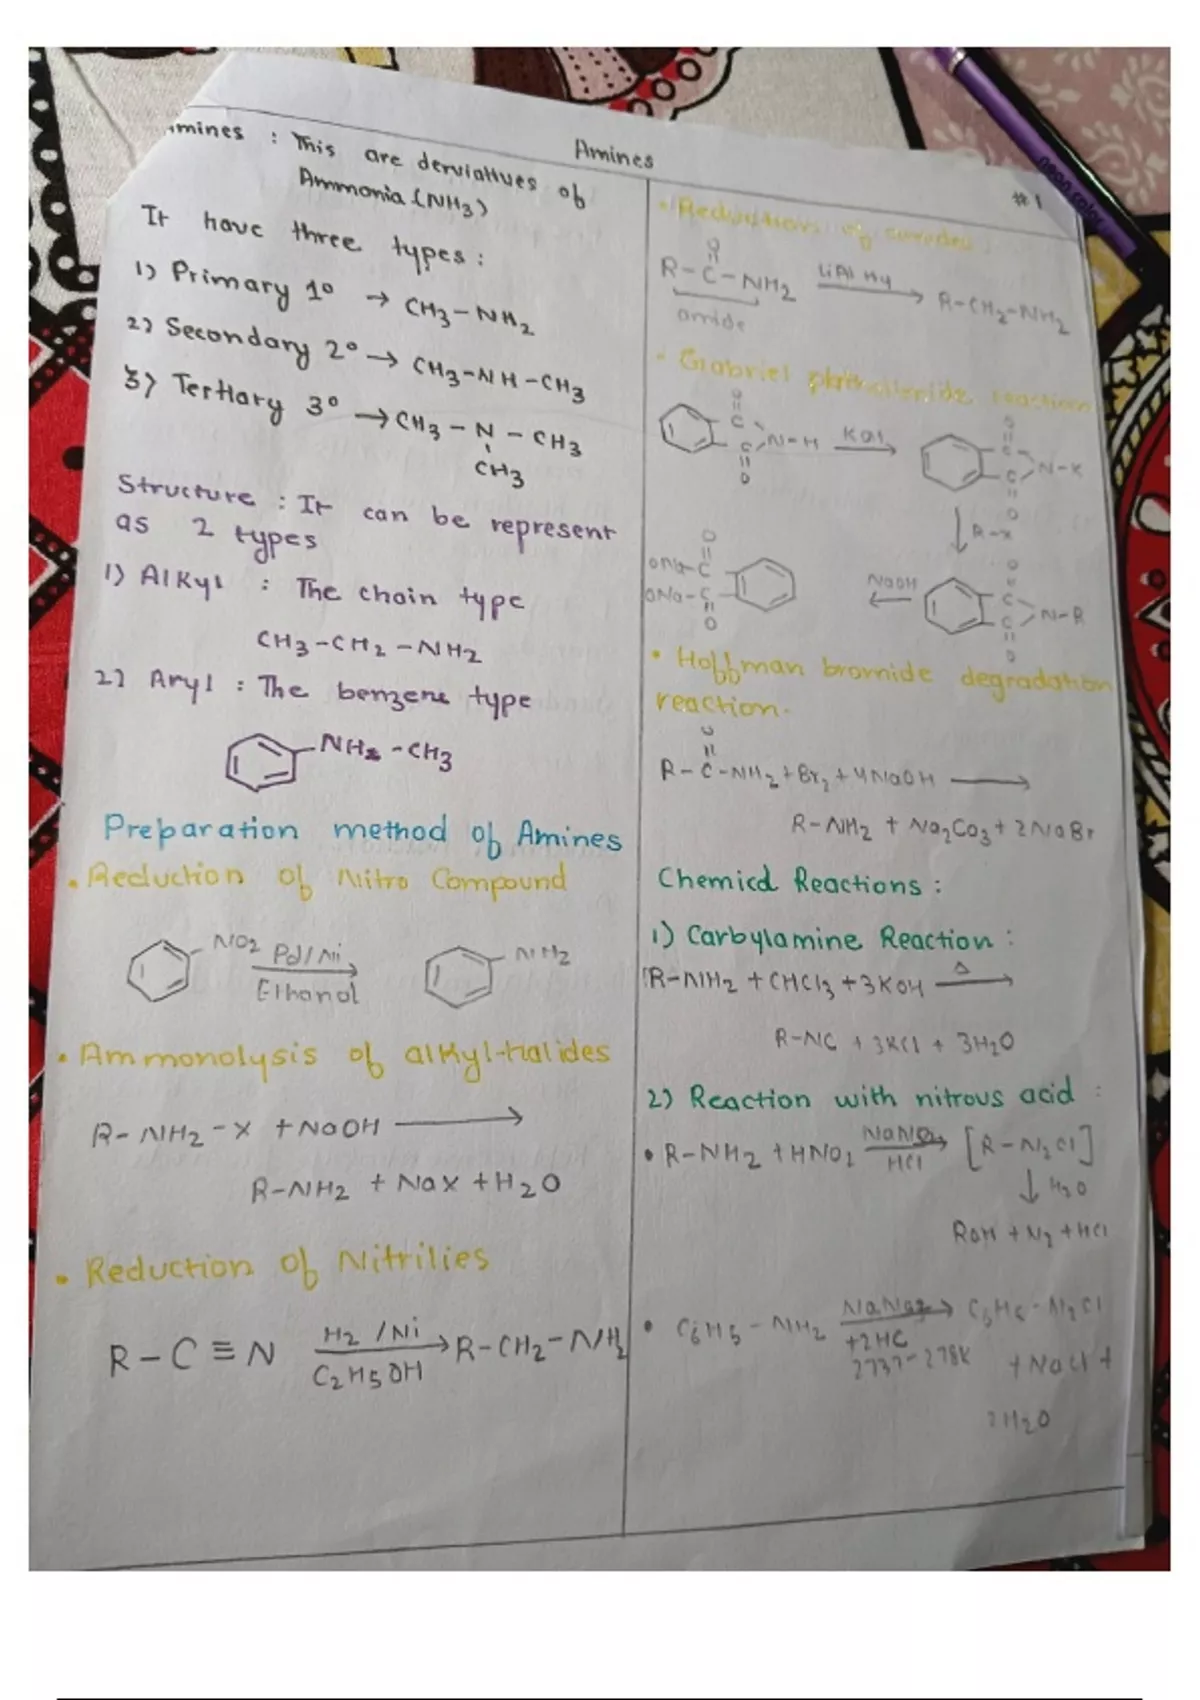 Amines
#1
mines : This are derviatives of
Ammonia (NH3)
It have three types :
1) Primary 1° → CH3-NH2
2) Secondary 2° → CH3-NH-CH3
3) Tertiary 3° → CH3-N-CH3
CH3
Structure : It can be represent
as 2 types
1) Alkyl : The chain type
CH3-CH2-NH2
2) Aryl : The benzene type
NH2-CH3
Preparation method of Amines
• Reduction of Nitro Compound
NO2 Pd/Ni NH2
Ethanol
• Ammonolysis of alkyl-Halides
R-NH2-X + NaOH →
R-NH2 + NaX + H2O
• Reduction of Nitrilies
R-C≡N H2/Ni → R-CH2-NH2
C2H5OH
• Reductions of
O
R-C-NH2 LiAlH4 → R-CH2-NH2
amide
• Gabriel reaction
O O
C C
N-H KOH → N-K
C C
O O
↓ R-X
O O
ONa-C C
NaOH ← N-R
ONa-C C
O O
• Hoffman bromide degradation
reaction.
O
R-C-NH2 + Br2 + 4NaOH →
R-NH2 + Na2CO3 + 2NaBr
Chemical Reactions :
1) Carbylamine Reaction :
R-NH2 + CHCl3 + 3KOH Δ →
R-NC + 3KCl + 3H2O
2) Reaction with nitrous acid :
• R-NH2 + HNO2 NaNO2 → [R-N2Cl]
HCl
↓ H2O
ROH + N2 + HCl
• C6H5-NH2 NaNO2 → C6H5-N2Cl
+2HC
273?-278K + NaCl +
2H2O